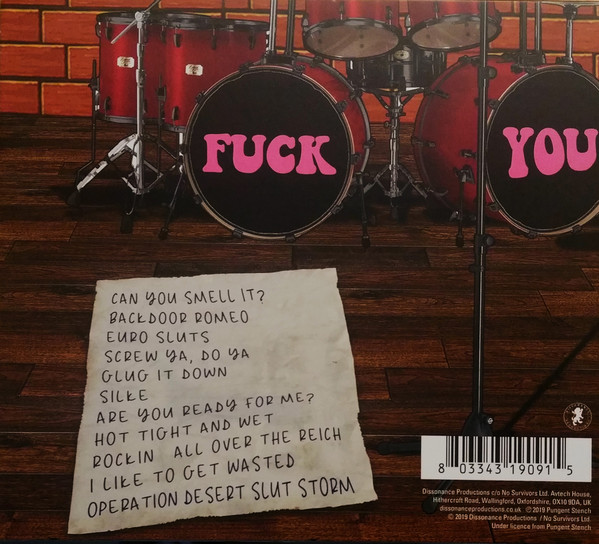 FUCK
YOU
CAN YOU SMELL IT?
BACKDOOR ROMEO
EURO SLUTS
SCREW YA, DO YA
GLUG IT DOWN
SILKE
ARE YOU READY FOR ME?
HOT TIGHT AND WET
ROCKIN ALL OVER THE REICH
I LIKE TO GET WASTED
OPERATION DESERT SLUT STORM
8 03343 19091 5
Dissonance Productions c/o No Survivors Ltd. Avtech House,
Hithercroft Road, Wallingford, Oxfordshire, OX10 9DA, UK
dissonanceproductions.co.uk ℗ 2019 Pungent Stench
© 2019 Dissonance Productions / No Survivors Ltd.
Under licence from Pungent Stench